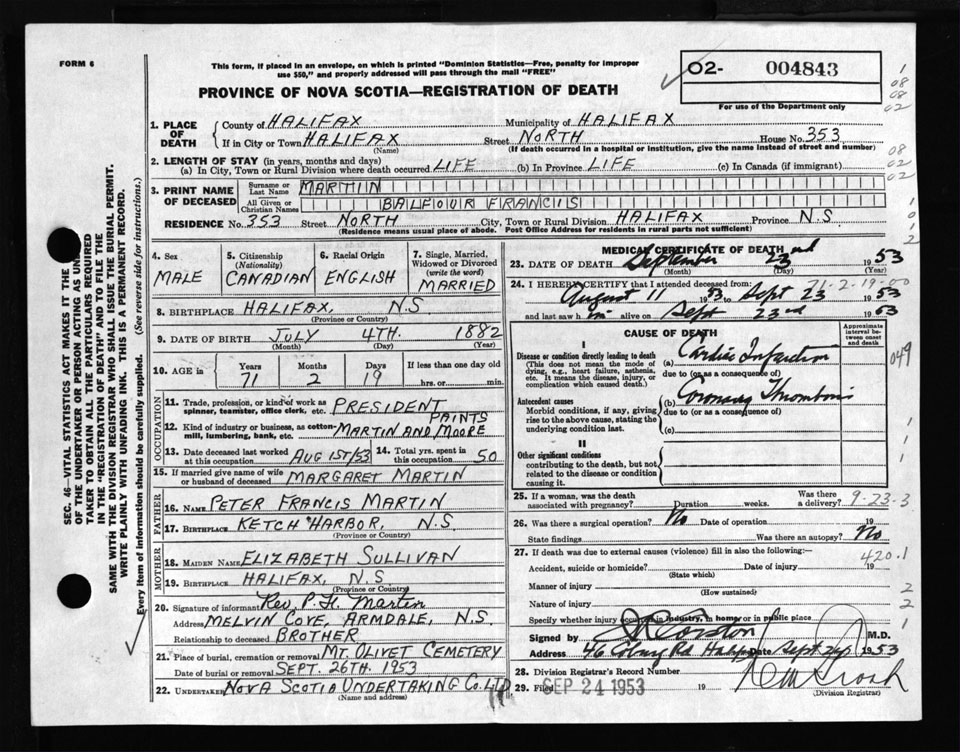 FORM 6
This form, if placed in an envelope, on which is printed "Dominion Statistics—Free, penalty for improper
use $50," and properly addressed will pass through the mail "FREE"
PROVINCE OF NOVA SCOTIA—REGISTRATION OF DEATH
02- 004843
For use of the Department only
1
08
08
02
08
02
02
1
0
1
2
SEC. 46—VITAL STATISTICS ACT MAKES IT THE
OF THE UNDERTAKER OR PERSON ACTING AS UND
TAKER TO OBTAIN ALL THE PARTICULARS REQUIRED
IN THE "REGISTRATION OF DEATH" AND TO FILE THE
SAME WITH THE DIVISION REGISTRAR WHO SHALL ISSUE THE BURIAL PERMIT.
WRITE PLAINLY WITH UNFADING INK. THIS IS A PERMANENT RECORD.
Every item of information should be carefully supplied. (See reverse side for instructions.)
1. PLACE OF DEATH
County of HALIFAX Municipality of HALIFAX
If in City or Town HALIFAX Street NORTH House No. 353
(Name) (If death occurred in a hospital or institution, give the name instead of street and number)
2. LENGTH OF STAY (in years, months and days)
(a) In City, Town or Rural Division where death occurred LIFE (b) In Province LIFE (c) In Canada (if immigrant)
3. PRINT NAME OF DECEASED
Surname or Last Name MARTIN
All Given or Christian Names BALFOUR FRANCIS
RESIDENCE No. 353 Street NORTH City, Town or Rural Division HALIFAX Province N.S.
(Residence means usual place of abode. Post Office Address for residents in rural parts not sufficient)
4. Sex 5. Citizenship (Nationality) 6. Racial Origin 7. Single, Married, Widowed or Divorced (write the word)
MALE CANADIAN ENGLISH MARRIED
8. BIRTHPLACE HALIFAX, N.S.
(Province or Country)
9. DATE OF BIRTH JULY 4TH. 1882
(Month) (Day) (Year)
10. AGE in Years Months Days If less than one day old
71 2 19 hrs. or min.
OCCUPATION
11. Trade, profession, or kind of work as
spinner, teamster, office clerk, etc. PRESIDENT
12. Kind of industry or business, as cotton-
mill, lumbering, bank, etc. MARTIN AND MOORE PAINTS
13. Date deceased last worked
at this occupation AUG 1ST/53
14. Total yrs. spent in
this occupation 50
15. If married give name of wife
or husband of deceased MARGARET MARTIN
FATHER
16. NAME PETER FRANCIS MARTIN
17. BIRTHPLACE KETCH HARBOR, N.S.
(Province or Country)
MOTHER
18. MAIDEN NAME ELIZABETH SULLIVAN
19. BIRTHPLACE HALIFAX, N.S.
(Province or Country)
20. Signature of informant Rev. P. H. Martin
Address MELVIN COVE, ARMDALE, N.S.
Relationship to deceased BROTHER
21. Place of burial, cremation or removal MT. OLIVET CEMETERY
Date of burial or removal SEPT. 26TH. 1953
22. UNDERTAKER NOVA SCOTIA UNDERTAKING CO. LTD
(Name and address)
MEDICAL CERTIFICATE OF DEATH
23. DATE OF DEATH September 23rd 1953
(Month) (Day) (Year)
24. I HEREBY CERTIFY that I attended deceased from:
71-2-19-00
August 11 1953 to Sept 23 1953
and last saw him alive on Sept 23rd 1953
CAUSE OF DEATH
Approximate interval between onset and death
I
Disease or condition directly leading to death
(This does not mean the mode of
dying, e.g., heart failure, asthenia,
etc. It means the disease, injury, or
complication which caused death.)
(a) Cardiac Infarction
due to (or as a consequence of)
049
Antecedent causes
Morbid conditions, if any, giving
rise to the above cause, stating the
underlying condition last.
(b) Coronary Thrombosis
due to (or as a consequence of)
(c)
II
Other significant conditions
contributing to the death, but not
related to the disease or condition
causing it.
1
1
1
25. If a woman, was the death
associated with pregnancy? Duration weeks. Was there a delivery? 9-23-3
26. Was there a surgical operation? No Date of operation 19
State findings Was there an autopsy? No
27. If death was due to external causes (violence) fill in also the following:—
420.1
Accident, suicide or homicide? Date of injury 19
(State which)
Manner of injury 2
(How sustained)
Nature of injury 2
Specify whether injury occurred in industry, in home, or in public place 1
Signed by M.D.
Address 46 Coburg Rd Halifax Date Sept 24 1953
28. Division Registrar's Record Number
29. Filed SEP 24 1953 19
(Division Registrar)